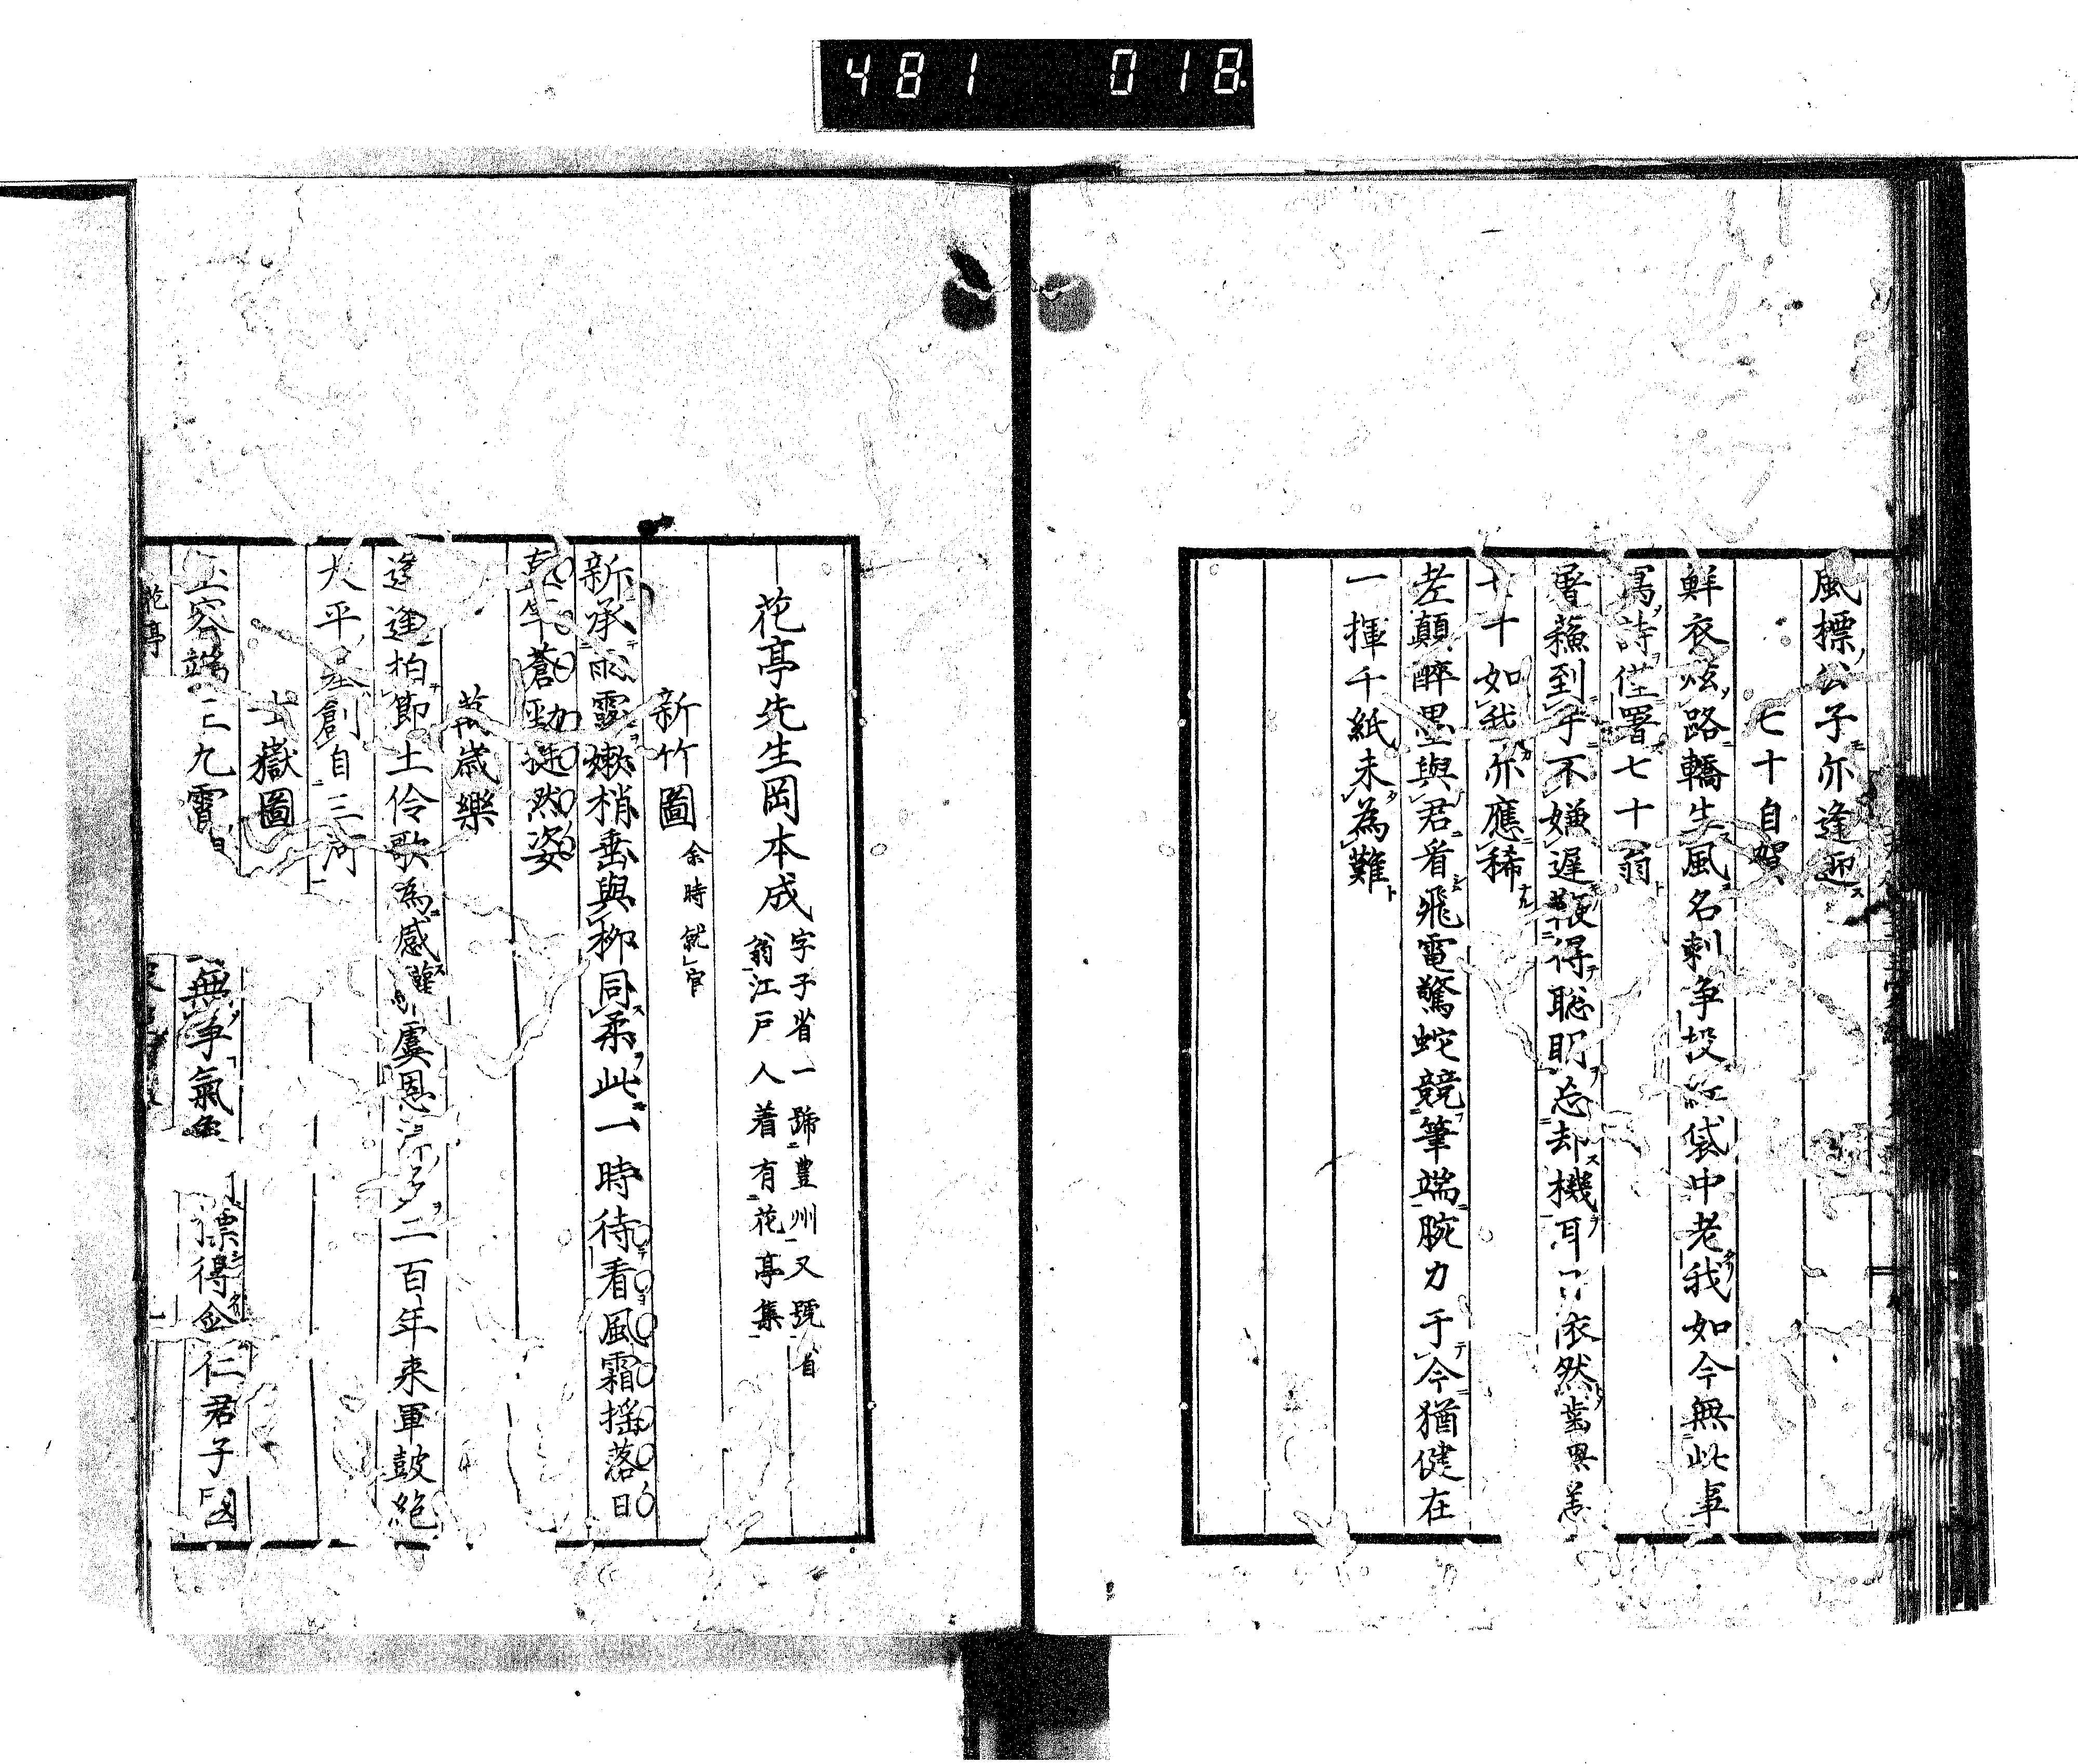 481 018
風標公子亦逢迎
七十自賀
鮮衣炫路轎生風名刺争投紅袋中老我如今無此事
寫詩僅署七十翁
看蘓到于不嫌遲報得聡明忘却機耳 依然歯累羔
七十如我亦應稀
老顛醉墨與君看飛電驚蛇競筆端腕力于今猶健在
一揮千紙未為難
花亭先生岡本成
字子省一號豊州又號省
翁江戸人着有花亭集
新竹圖 余時就官
新承雨露嫩梢垂與柳同柔此一時待看風霜揺落日
蒼勁挺然姿
萬歳樂
逢逢拍節土伶歌為感 虞恩 多二百年来軍鼓絶
大平基創自三河
嶽圖
容端 九霄 無争氣 標得 仁君子國
花亭